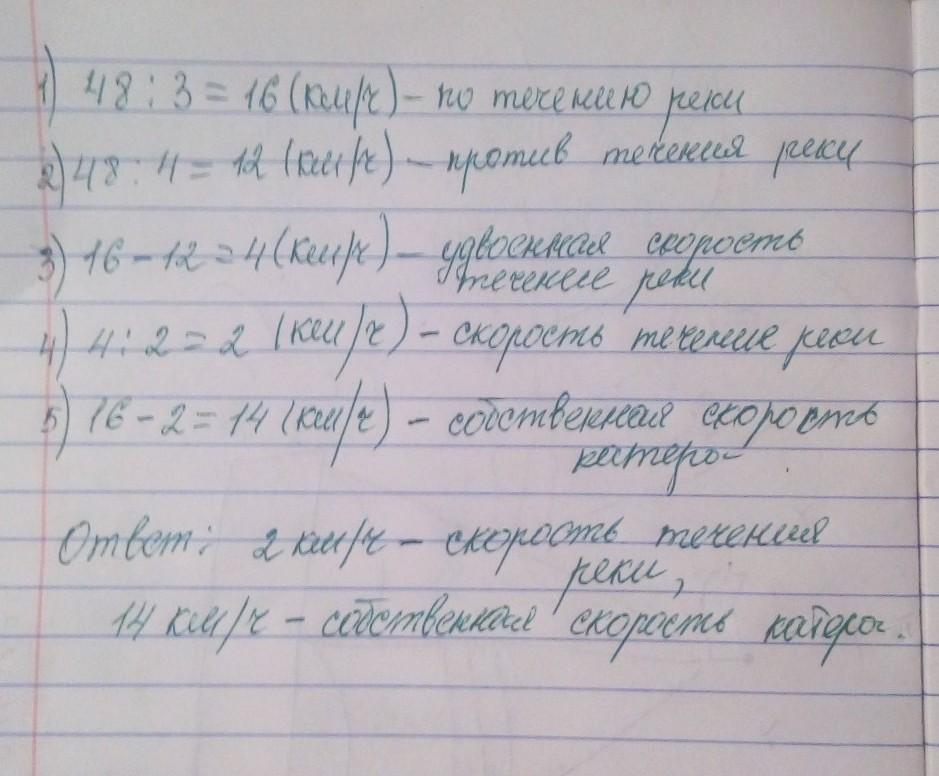 1) 48 : 3 = 16 (км/ч) – по течению реки
2) 48 : 4 = 12 (км/ч) – против течения реки
3) 16 – 12 = 4 (км/ч) – удвоенная скорость
течение реки
4) 4 : 2 = 2 (км/ч) – скорость течение реки
5) 16 – 2 = 14 (км/ч) – собственная скорость
катера
Ответ: 2 км/ч – скорость течения
реки,
14 км/ч – собственная скорость катера.